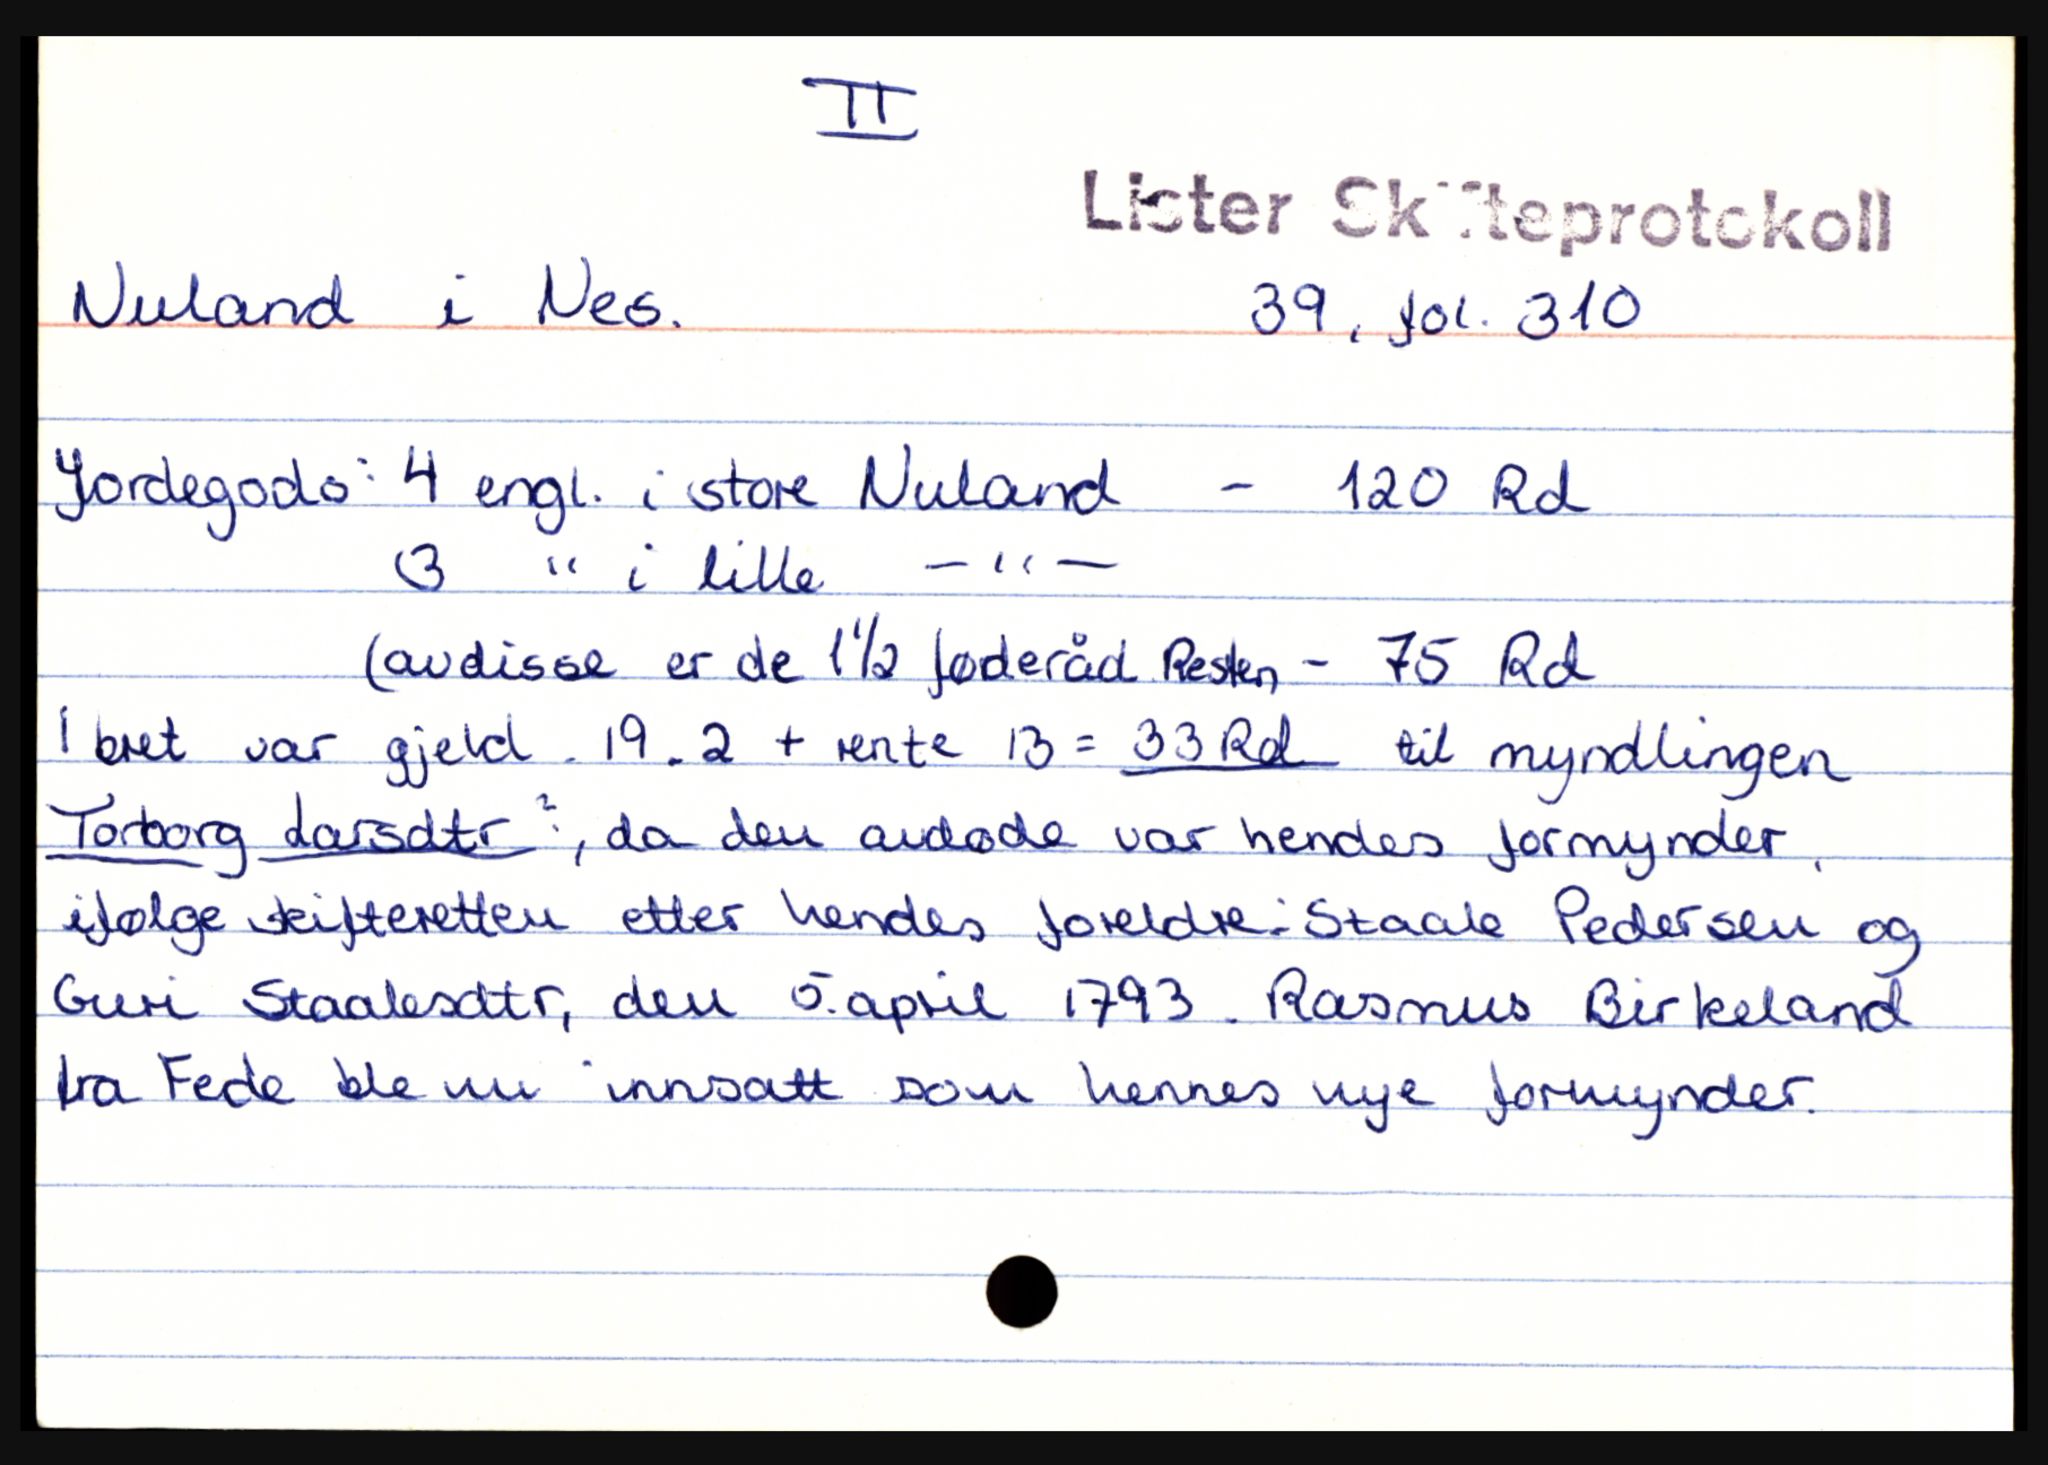 II
Lister Skifteprotokoll
Nuland i Nes. 39, fol. 310
Jordegods: 4 engl. i store Nuland - 120 Rd
3 " i lille - " -
(avdisse er de 1 1/2 føderåd Resten - 75 Rd
I bret var gjeld . 19.2 + rente 13 = 33 Rd til myndlingen
Torborg Larsdtr ?, da den avdøde var hendes formynder,
ifølge skifteretten etter hendes foreldre: Staale Pedersen og
Guri Staalesdtr, den 5. april 1793. Rasmus Birkeland
fra Fede ble nu innsatt som hennes nye formynder.